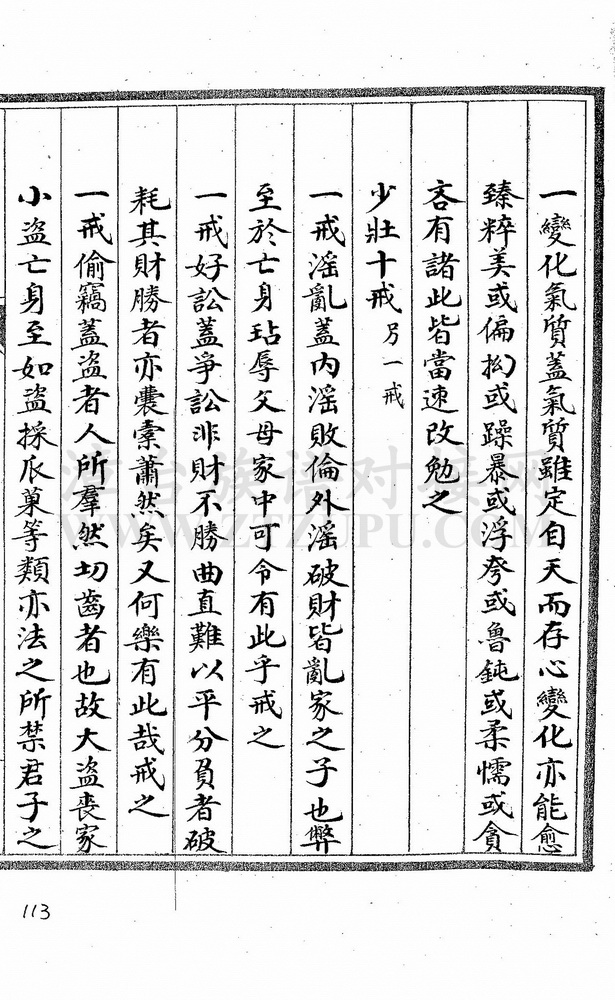 一變化氣質蓋氣質雖定自天而存心變化亦能愈
臻粹美或偏拗或躁暴或浮夸或魯鈍或柔懦或貪
吝有諸此皆當速改勉之
少壯十戒 另一戒
一戒淫亂蓋內淫敗倫外淫破財皆亂家之子也弊
至於亡身玷辱父母家中可令有此乎戒之
一戒好訟蓋爭訟非財不勝曲直難以平分負者破
耗其財勝者亦囊槖蕭然矣又何樂有此哉戒之
一戒偷竊蓋盜者人所羣然切齒者也故大盜喪家
小盜亡身至如盜採瓜菓等類亦法之所禁君子之
113
WWW.ZTZUPU.COM